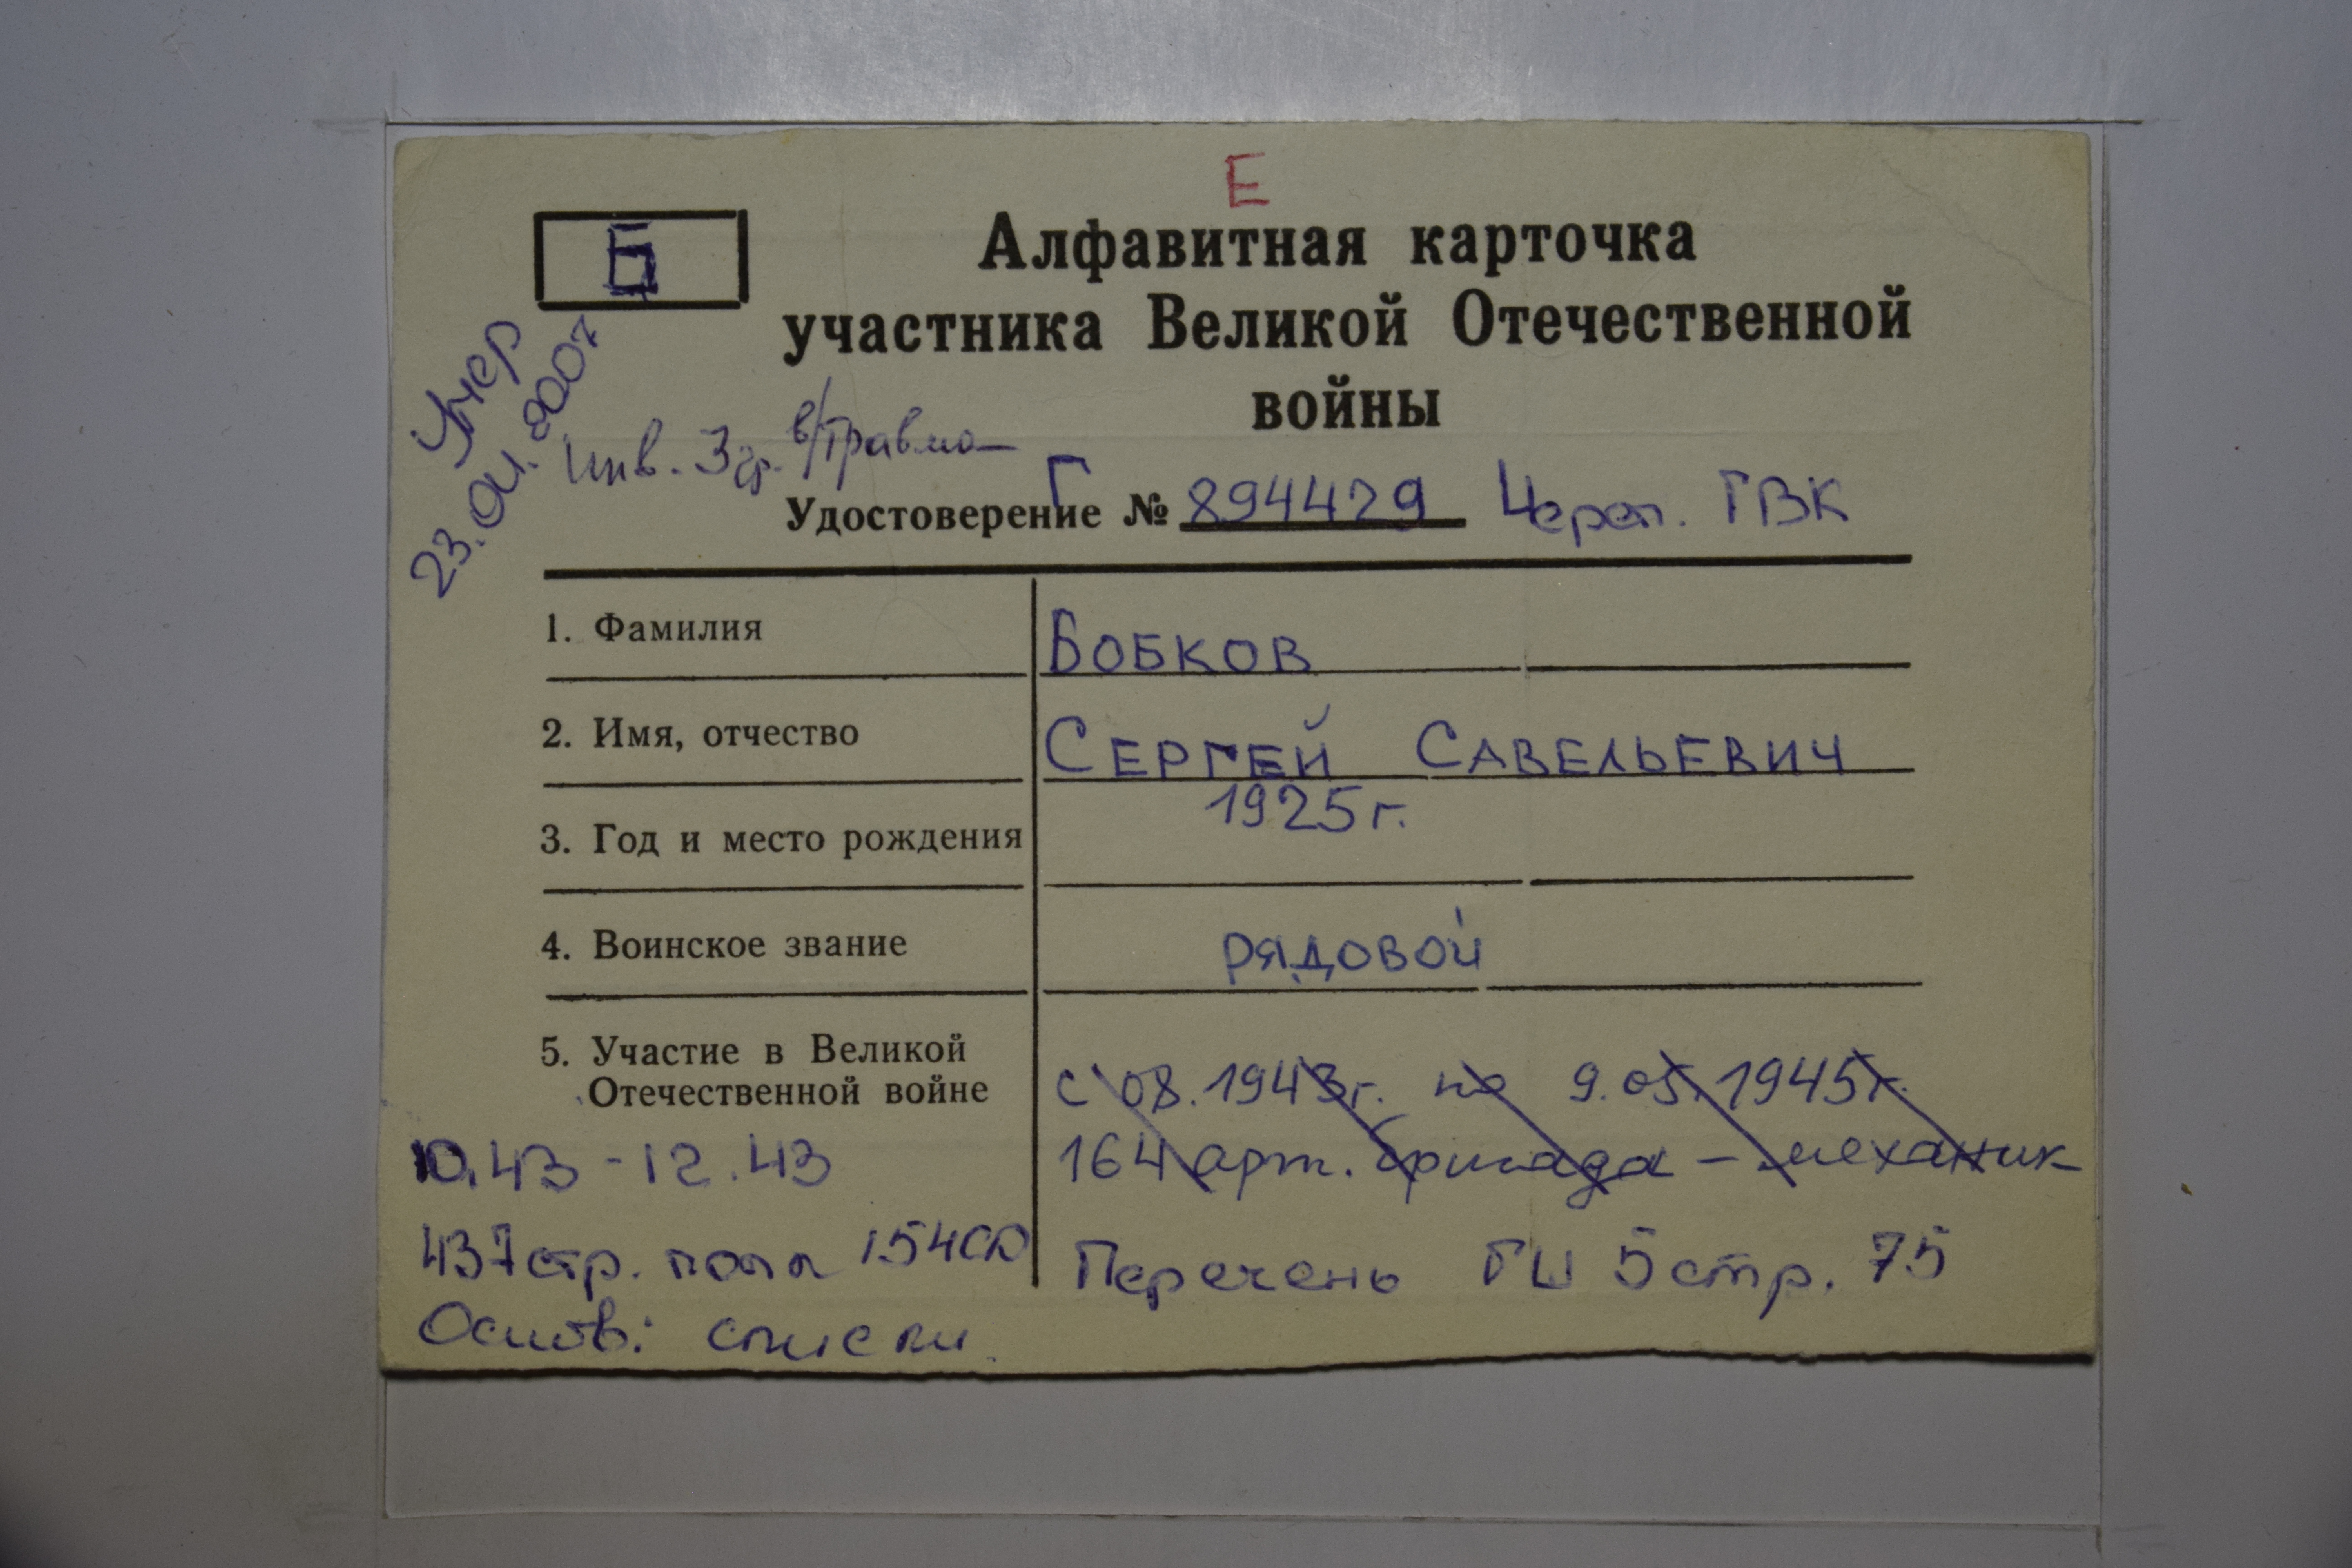 Е
Б
Алфавитная карточка
участника Великой Отечественной
войны
Умер
23.04.2007
Инв. 3 гр. в/травма
Г
Удостоверение № 894429 Череп. ГВК
1. Фамилия БОБКОВ
2. Имя, отчество СЕРГЕЙ САВЕЛЬЕВИЧ
3. Год и место рождения 1925 г.
4. Воинское звание РЯДОВОЙ
5. Участие в Великой
Отечественной войне
с 08.1943г. по 9.05.1945г.
164 арт. бригада – механик
10.43 - 12.43
437 стр. полк 154 СД
Основ: списки
Перечень ГШ 5 стр. 75